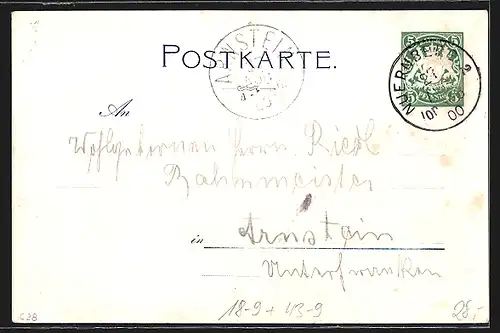 POSTKARTE.
ARNSTEIN
5 5
NUERNBERG 2
00
An
Wohlgeboren Herrn Riedl
Bahnmeister
in Arnstein
Unterfranken
18-9 + 43-9
28,-